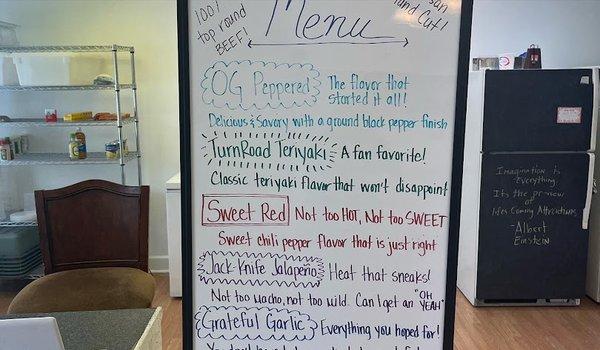 100%
top round
BEEF!
Menu
Hand Cut!
OG Peppered The flavor that
started it all!
Delicious & Savory with a ground black pepper finish
TurnRoad Teriyaki A fan favorite!
Classic teriyaki flavor that won't disappoint
Sweet Red Not too HOT, Not too SWEET
Sweet chili pepper flavor that is just right
Jack-Knife Jalapeño Heat that sneaks!
Not too macho, not too wild. Can I get an "OH
YEAH"
Grateful Garlic Everything you hoped for!
Imagination is
Everything.
Its the preview
of
Coming Attractions
-Albert
Einstein